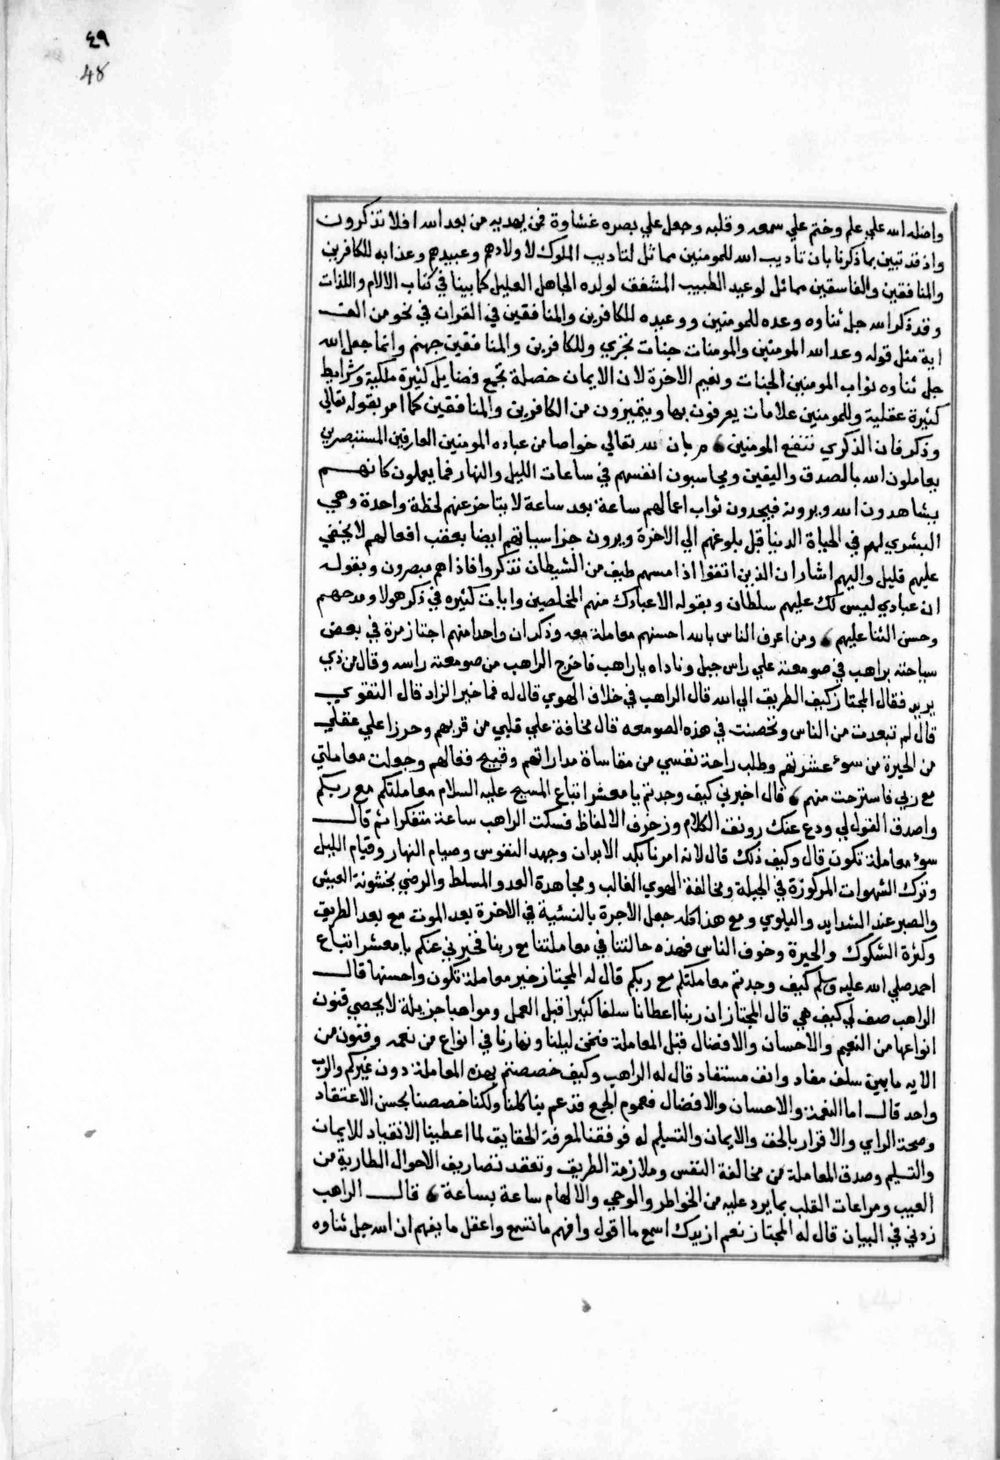 ٤٩
48
واضله الله علي علم وختم علي سمعه وقلبه وجعل علي بصره غشاوة فمن يهديه من بعد الله افلا تذكرون
واذ قد تبين بما ذكرنا بان تاديب الله للمومنين مماثل لتاديب الملوك لاولادهم وعبيدهم وعذابه للكافرين
والمنافقين والفاسقين مماثل لوعيد الطبيب المشفق لولده الجاهل العليل كما بينا في كتاب الالام واللذات
وقد ذكر الله جل ثناوه وعده للمومنين ووعيده للكافرين والمنافقين في القران في نحو من الف
اية مثل قوله وعد الله المومنين والمومنات جنات تجري وللكافرين والمنافقين جهنم وانما جعل الله
جل ثناوه ثواب المومنين الجنات ونعيم الاخرة لان الايمان خصلة تجمع فضايل كثيرة ملكية وشرايط
كثيرة عقلية وللمومنين علامات يعرفون بها ويتميزون من الكافرين والمنافقين كما امر بقوله تعالي
وذكر فان الذكري تنفع المومنين بان لله تعالي خواصا من عباده المومنين العارفين المستبصرين
يعاملون الله بالصدق واليقين ويحاسبون انفسهم في ساعات الليل والنهار فيما يعملون كانهم
يشاهدون الله ويرونه فيجدون ثواب اعمالهم ساعة بعد ساعة لا يتاخر عنهم لحظة واحدة وهي
البشري لهم في الحياة الدنيا قبل بلوغهم الي الاخرة ويرون جزا سياتهم ايضا بعقب افعالهم لا يخفي
عليهم قليل واليهم اشار ان الذين اتقوا اذا مسهم طيف من الشيطان تذكروا فاذا هم مبصرون وبقوله
ان عبادي ليس لك عليهم سلطان وبقوله الا عبادك منهم المخلصين وايات كثيره في ذكر هولا ومدحهم
وحسن الثنا عليهم ومن اعرف الناس بالله احسنهم معاملة معه وذكر ان واحدا منهم اجتاز مرة في بعض
سياحته براهب في صومعة علي راس جبل وناداه يا راهب فاخرج الراهب من صومعته راسه وقال من ذي
يريد فقال المجتاز كيف الطريق الي الله قال الراهب في خلاف الهوي قال له فما خير الزاد قال التقوي
قال لم تبعدت من الناس وتحصنت في هذه الصومعه قال مخافة علي قلبي من قربهم وحرزا علي عقلي
من الحيرة من سوء عشرتهم وطلب راحة نفسي من مقاساة مداراتهم وقبيح فعالهم وجعلت معاملتي
مع ربي فاسترحت منهم قال اخبرني كيف وجدتم يا معشر اتباع المسيح عليه السلام معاملتكم مع ربكم
واصدق القول لي ودع عنك رونق الكلام وزخرف الالفاظ فسكت الراهب ساعة متفكرا ثم قال
سوء معاملة تكون قال وكيف ذلك قال لانه امرنا بكد الابدان وجهد النفوس وصيام النهار وقيام الليل
وترك الشهوات المركوزة في الجبلة ومخالفة الهوي الغالب ومجاهدة العدو المسلط والرضي بخشونة العيش
والصبر عند الشدايد والبلوي ومع هذا كله جعل الاجرة بالنسية في الاخرة بعد الموت مع بعد الطريق
وكثرة الشكوك والحيرة وخوف الناس فهذه حالتنا في معاملتنا مع ربنا فخبرني عنكم يا معشر اتباع
احمد صلي الله عليه وسلم كيف وجدتم معاملتكم مع ربكم قال له المجتاز خير معاملة تكون واحسنها قال
الراهب صف لي كيف هي قال المجتاز ان ربنا اعطانا سلفا كثيرا قبل العمل ومواهبا جزيلة لا يحصي فنون
انواعها من النعيم والاحسان والافضال قبل المعاملة فنحن ليلنا ونهارنا في انواع من نعمه وفنون من
الايه ما بين سلف معاد وانف مستفاد قال له الراهب وكيف خصصتم بهذه المعاملة دون غيركم والرب
واحد قال اما النعمة والاحسان والافضال فعموم لجميع قد عم بنا كلنا ولكنا خصصنا بحسن الاعتقاد
وصحة الراي والاقرار بالحق والايمان والتسليم له فوفقنا لمعرفة الحقايق لما اعطينا الانقياد للايمان
والتسليم وصدق المعاملة من مخالفة النفس وملازمة الطريق وتعقد تصاريف الاحوال الطارية من
الغيب ومراعات القلب بما يرد عليه من الخواطر والوحي والالهام ساعة بساعة قال الراهب
زدني في البيان قال له المجتاز نعم ازيدك اسمع ما اقول وافهم ما تسمع واعقل ما يفهم ان الله جل ثناوه